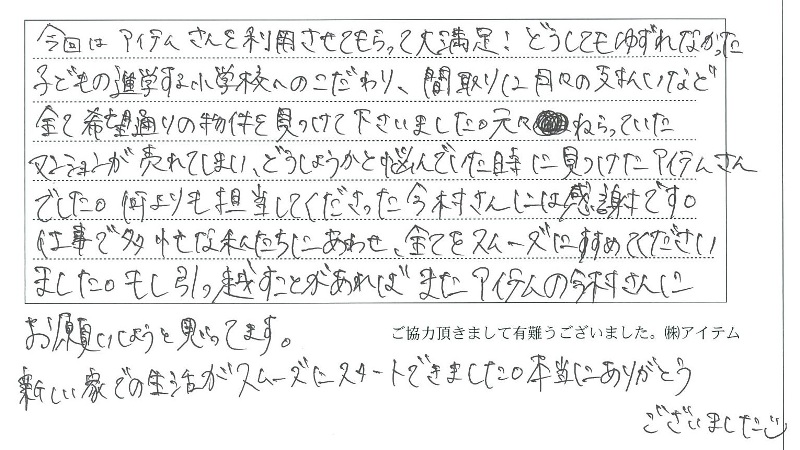 今回はアイテムさんを利用させてもらって大満足！どうしてもゆずれなかった
子どもの進学する小学校へのこだわり、間取りに月々の支払いなど
全て希望通りの物件を見つけて下さいました。元々ねらっていた
マンションが売れてしまい、どうしようかと悩んでいた時に見つけたアイテムさん
でした。何よりも担当してくださった今村さんには感謝です。
仕事で多忙な私たちにあわせ、全てをスムーズにすすめてください
ました。もし引っ越すことがあればまたアイテムの今村さんに
お願いしようと思ってます。
ご協力頂きまして有難うございました。㈱アイテム
新しい家での生活がスムーズにスタートできました。本当にありがとう
ございました